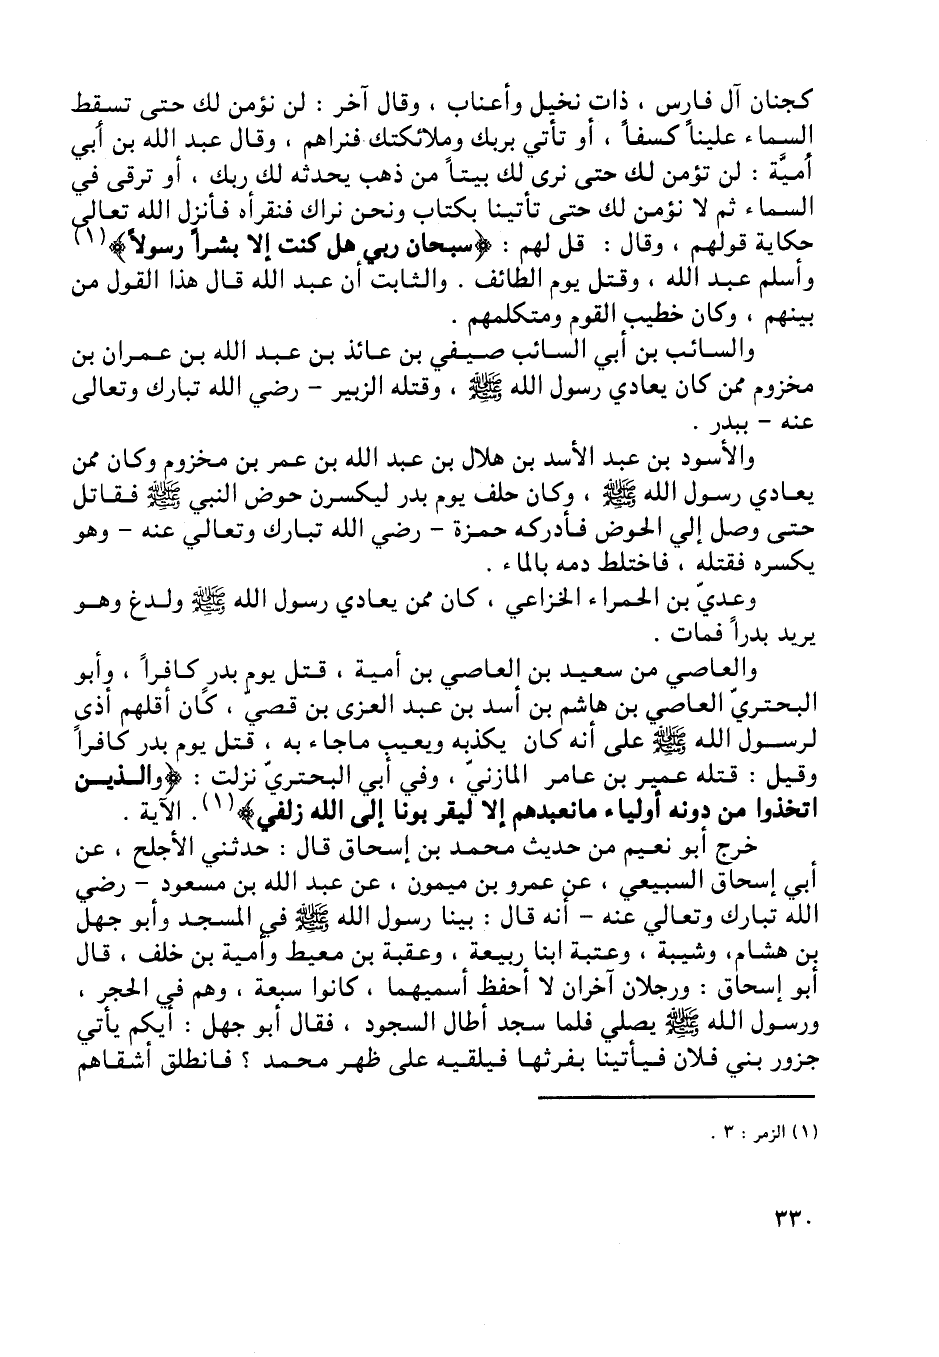 كجنان آل فارس ، ذات نخيل وأعناب ، وقال آخر : لن نؤمن لك حتى تسقط
السماء علينا كسفاً ، أو تأتي بربك وملائكتك فنراهم ، وقال عبد الله بن أبي
أميَّة : لن تؤمن لك حتى نرى لك بيتاً من ذهب يحدثه لك ربك ، أو ترقى في
السماء ثم لا نؤمن لك حتى تأتينا بكتاب ونحن نراك فنقرأه فأنزل الله تعالى
حكاية قولهم ، وقال : قل لهم : ﴿سبحان ربي هل كنت إلا بشراً رسولاً﴾(١)
وأسلم عبد الله ، وقتل يوم الطائف . والثابت أن عبد الله قال هذا القول من
بينهم ، وكان خطيب القوم ومتكلمهم .
والسائب بن أبي السائب صيفي بن عائذ بن عبد الله بن عمران بن
مخزوم ممن كان يعادي رسول الله ﷺ ، وقتله الزبير – رضي الله تبارك وتعالى
عنه – ببدر .
والأسود بن عبد الأسد بن هلال بن عبد الله بن عمر بن مخزوم وكان ممن
يعادي رسول الله ﷺ ، وكان حلف يوم بدر ليكسرن حوض النبي ﷺ فقاتل
حتى وصل إلي الحوض فأدركه حمزة – رضي الله تبارك وتعالي عنه – وهو
يكسره فقتله ، فاختلط دمه بالماء .
وعديّ بن الحمراء الخزاعي ، كان ممن يعادي رسول الله ﷺ ولدغ وهو
يريد بدراً فمات .
والعاصي من سعيد بن العاصي بن أمية ، قتل يوم بدر كافراً ، وأبو
البحتريّ العاصي بن هاشم بن أسد بن عبد العزى بن قصيّ ، كان أقلهم أذى
لرسول الله ﷺ على أنه كان يكذبه ويعيب ماجاء به ، قتل يوم بدر كافراً
وقيل : قتله عمير بن عامر المازنيّ ، وفي أبي البحتريّ نزلت : ﴿والذين
اتخذوا من دونه أولياء مانعبدهم إلا ليقر بونا إلى الله زلفي﴾(١). الآية .
خرج أبو نعيم من حديث محمد بن إسحاق قال : حدثني الأجلح ، عن
أبي إسحاق السبيعي ، عن عمرو بن ميمون ، عن عبد الله بن مسعود – رضي
الله تبارك وتعالي عنه – أنه قال : بينا رسول الله ﷺ في المسجد وأبو جهل
بن هشام، وشيبة ، وعتبة ابنا ربيعة ، وعقبة بن معيط وأمية بن خلف ، قال
أبو إسحاق : ورجلان آخران لا أحفظ أسميهما ، كانوا سبعة ، وهم في الحجر ،
ورسول الله ﷺ يصلي فلما سجد أطال السجود ، فقال أبو جهل : أيكم يأتي
جزور بني فلان فيأتينا بفرثها فيلقيه على ظهر محمد ؟ فانطلق أشقاهم
(١) الزمر : ٣ .
٣٣٠